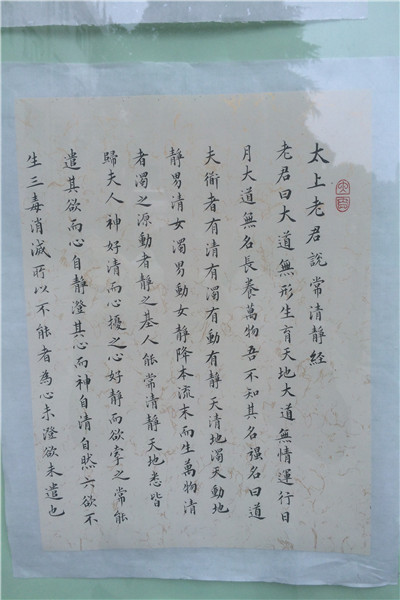 太上老君說常清靜經
老君曰大道無形生育天地大道無情運行日
月大道無名長養萬物吾不知其名强名曰道
夫衜者有清有濁有動有靜天清地濁天動地
靜男清女濁男動女靜降本流末而生萬物清
者濁之源動者靜之基人能常清靜天地悉皆
歸夫人神好清而心擾之心好靜而欲牽之常能
遣其欲而心自靜澄其心而神自清自然六欲不
生三毒消滅所以不能者為心未澄欲未遣也